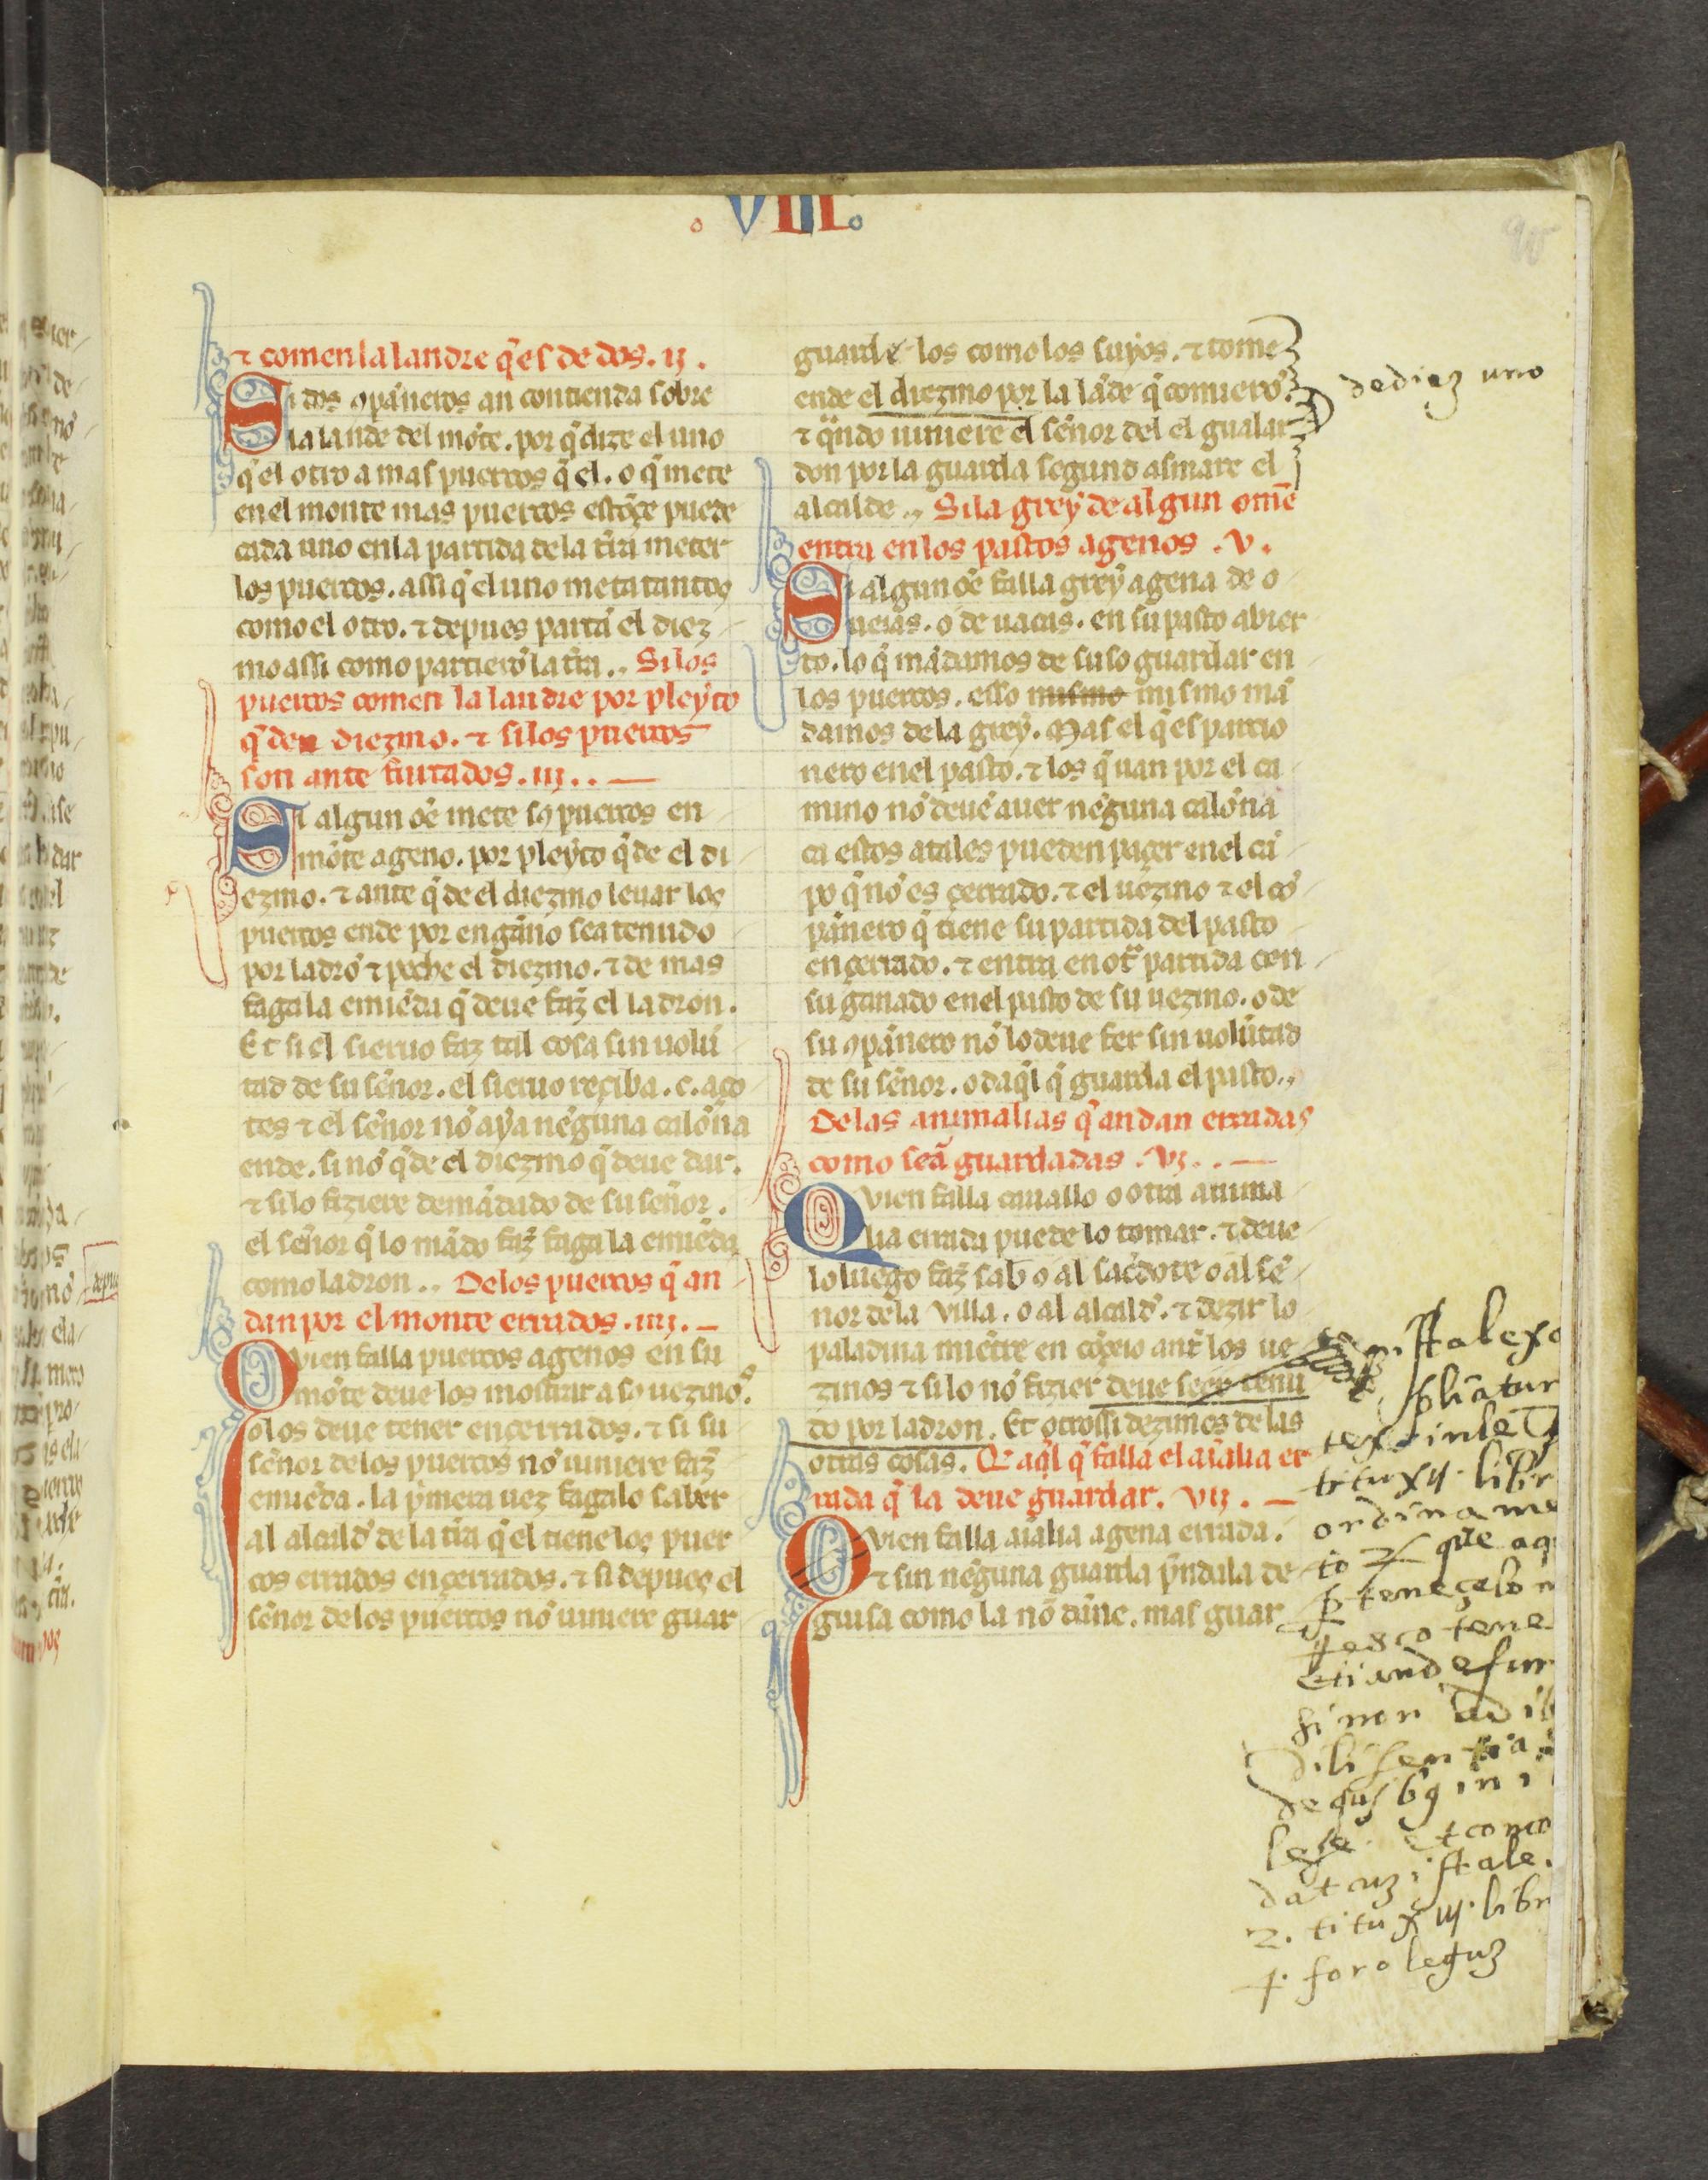 . VIII.
90
⁊ comen la landre q̃ es de dos. ij.
Si dos ꝯpãneros an contienda sobre
la lande del mõte. por q̃ dize el uno
q̃ el otro a mas puercos q̃ el. o q̃ mete
en el monte mas puercos estõçe puede
cada uno en la partida de la tr̃ra meter
los puercos. assi q̃ el uno meta tantos
como el otro. ⁊ depues partã el diez
mo assi como partierõ la tr̃ra.. Si los
puercos comen la landre por pleyto
q̃ den diezmo. ⁊ si los puercos
son ante furtados. iij..
Si algun oẽ mete sꝯ puercos en
mõte ageno. por pleyto q̃ de el di
ezmo. ⁊ ante q̃ de el diezmo leuar los
puercos ende por engãno sea tenudo
por ladrõ ⁊ peche el diezmo. ⁊ de mas
faga la emiẽda q̃ deue faz̃ el ladron.
Et si el sieruo faz tal cosa sin uolũ
tad de su sẽnor. el sieruo reçiba. c. aço
tes ⁊ el sẽnor nõ aya nẽguna calõna
ende. si nõ q̃ de el diezmo q̃ deue dar.
⁊ si lo fiziere demãdado de su sẽnor.
el sẽnor q̃ lo mãdo faz̃ faga la emiẽda
como ladron.. De los puercos q̃ an
dan por el monte errados. iiij.
Quien falla puercos agenos en su
mõte deue los mostrar a sꝯ uezinos.
o los deue tener ençerrados. ⁊ si su
sẽnor de los puercos nõ uiniere faz̃
emiẽda. la p̃mera uez fagalo saber
al alcalđ de la tr̃ra q̃ el tiene los puer
cos errados ençerrados. ⁊ si depues el
sẽnor de los puercos nõ uiniere guar
guarde los como los suyos. ⁊ tome
ende el diezmo por la lãde q̃ comierõ.
⁊ q̃ndo uiniere el sẽnor del el gualar
don por la guarda segund asmare el
alcalde.. Si la grey de algun omẽ
entra en los pastos agenos .v.
Si algun oẽ falla grey agena de o
ueias. o de uacas. en su pasto abier
to. lo q̃ mãdamos de suso guardar en
los puercos. esso mismo mismo mã
damos de la grey. Mas el q̃ es parcio
nero en el pasto. ⁊ los q̃ uan por el ca
mino nõ deuẽ auer nẽguna calõna
ca estos atales pueden paçer en el cã
po q̃ nõ es çerrado. ⁊ el uezino ⁊ el cõ
pãnero q̃ tiene su partida del pasto
ençerrado. ⁊ entra en otr̃ partida con
su ganado en el pasto de su uezino. o de
su ꝯpãnero nõ lo deue fer sin uolũtad
de su sẽnor. o daq̃l q̃ guarda el pasto.,
De las animalias q̃ andan erradas
como seã guardadas .vj..
Quien falla cauallo o otra anima
lia errada puede lo tomar. ⁊ deue
lo luego faz̃ sab̃ o al sac̃dote o al sẽ
nor de la villa. o al alcalđ. ⁊ dezir lo
paladina miẽtre en cõçeio ant̃ los ue
zinos ⁊ si lo nõ fizier deue seer tenu
do por ladron. Et otrossi dezimos de las
otras cosas. Q̃ aq̃l q̃ falla el aĩalia er
rada q̃ la deue guardar. vij.
Quien falla aĩalia agena errada.
⁊ sin nẽguna guarda p̃ndala de
guisa como la nõ dãne. mas guar
dediez uno
ista lex
pliatur
tex in le
titu xij. libr
ordiname
to que aq
tene
etiand e fur
si non ad
dilisentia
de qusbꝯ in i
lege et como
datuz ista le.
2. titu x iij. libr
4. foro leguz